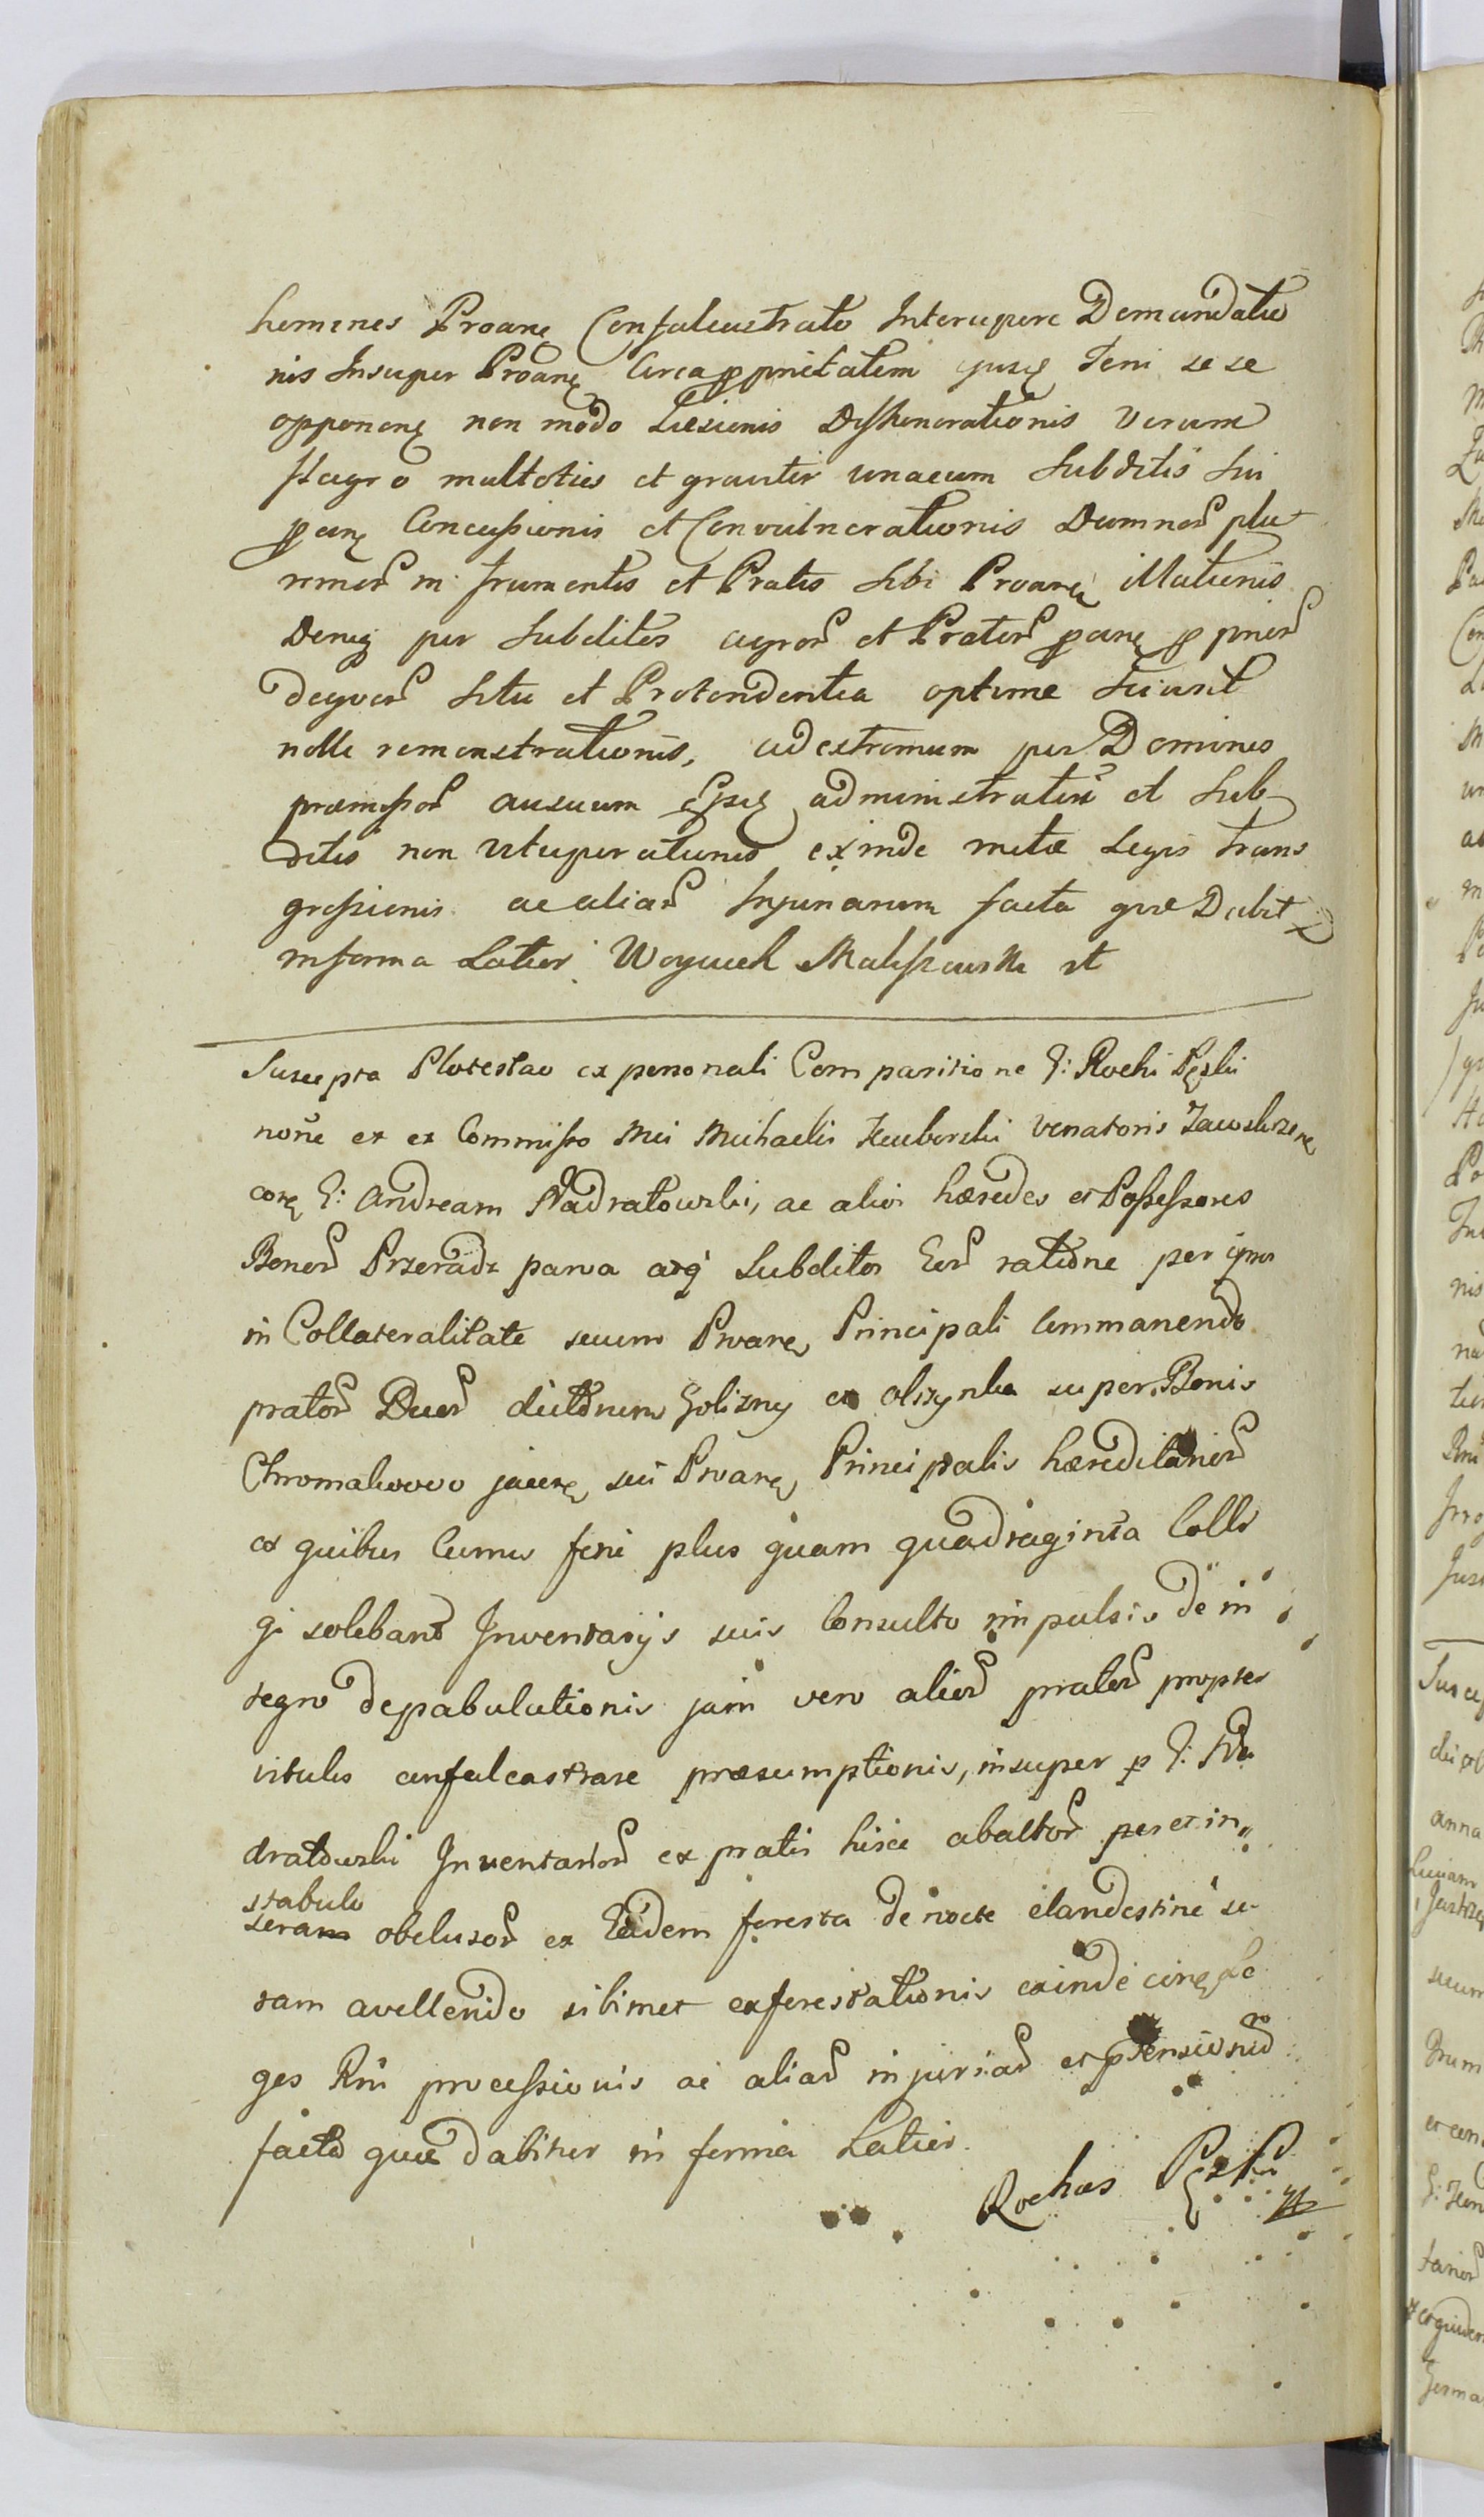 homines Proanę Confalcastrato Interupere Demandatio
nis Insuper Proanę Circa pprietatem ejusę Feni se se
opponenę non modo Læsionis Dishonorationis Verum
flagro multoties et graviter unacum Subditis sui
panę Concussionis et Convulnerationis Damnor plu
rimor in frumentis et Pratis sibi Proanę illationis
Deniq per Subditos agror et Prator panę pprior
deqver situ et Protendentia optime sciunt
nolle remonstrationis, ad extremum per Dominos
præmissor ausuum Ejusę administrationi et Sub
ditis non vituperationis exinde metæ Legis Trans
gressionis ac aliar Injuriarum facta quæ Dabit
in forma Latior Woyciech Maliszewski mp

Suscepta Plotestao ex personali Comparitione G: Rochi Pęski
noñe et ex Commisso Mci Michaelis Zembrzuski Venatoris Zawskrzenę
corę G: Andream Nadratowski, ac alios hæredes et Possessores
Bonor Przeradz parva atq Subditos Eor ratione per ipsos
in Collateralitate secum Proanę Principali Commanendo
prator Duor dictorum Golizny et Olszynka super Bonis
Chromakowo jacenę sui Proanę Principalis hæreditarior
ex quibus Currus feni plus quam quadraginta Colli
gi solebant Inventarijs suis Consulto impulsis de in
tegro depabulationis jam vero alior prator propter
vitulos confalcastrare præsumptionis, insuper p G: Na
dratowski Inventarior ex pratis hisce abactor per et in
stabulo
seram obclusor ex Eadem foresta de nocte clandestine se
ram avellendo sibimet exforestationis exinde cinę Le
ges Rni processionis ac aliar injuriar et ptensionum
facto quæ dabitur in forma Latior.
Rochus Pęski mp